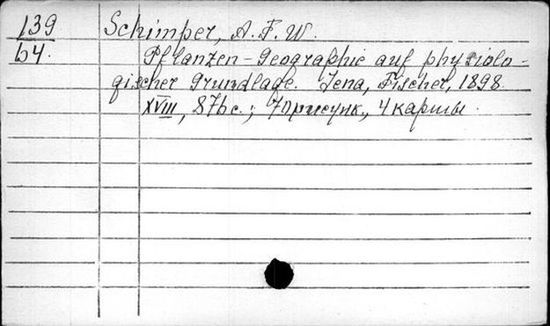 139 Schimper, A. F. W.
64. Pflanzen-Geographie auf physiolo-
gischer Grundlage. Jena, Fischer, 1898.
XVIII, 876 c.; 70 рисунк., 4 карты.